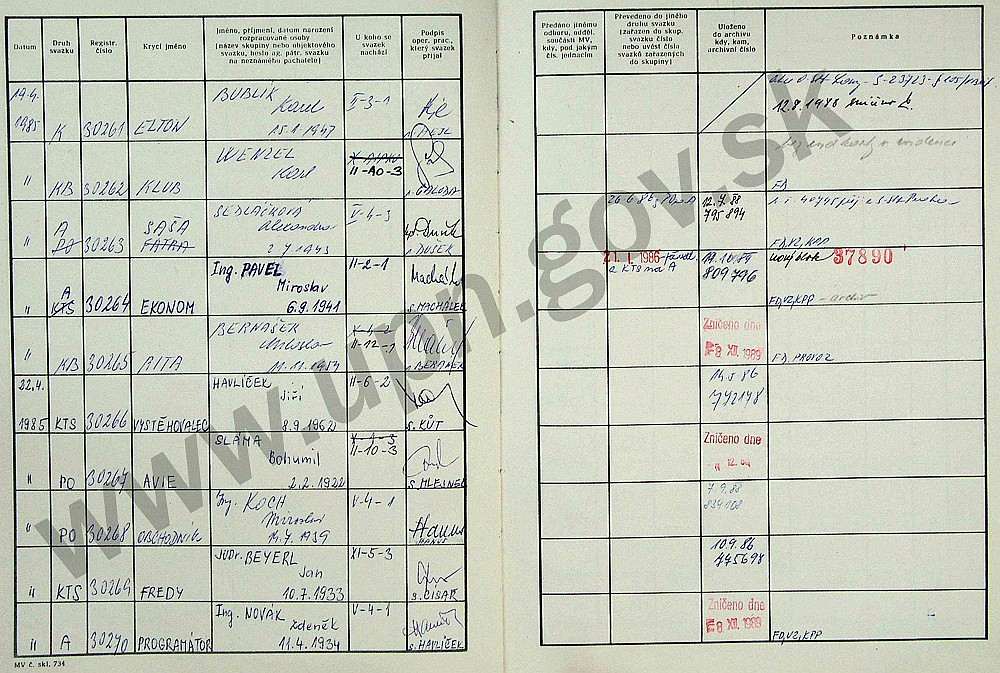 Datum
Druh svazku
Registr. číslo
Krycí jméno
Jméno, příjmení, datum narození
rozpracované osoby
(název skupiny nebo objektového
svazku, heslo ag. pátr. svazku
na neznámého pachatele)
U koho se
svazek
nachází
Podpis
oper. prac.,
který svazek
přijal
Předáno jinému
odboru, odděl.
součásti MV,
kdy, pod jakým
čís. jednacím
Převedeno do jiného
druhu svazku
(zařazen do skup.
svazku číslo
nebo uvést čísla
svazků zařazených
do skupiny)
Uloženo
do archivu
kdy, kam,
archivní číslo
Poznámka
19.4.
1985 K 30261 ELTON BUBLÍK Karel 15.1.1947 II-3-1
12.8.1988
" KB 30262 KLUB WENZEL Karel II-AO-3
FD
" A 30263 SAŠA FATRA SEDLÁČKOVÁ Alexandra 2.7.1943 V-4-3 DUŠEK
12.7.88
795894
FD,VZ,KPP
" A KTS 30264 EKONOM Ing. PAVEL Miroslav 6.9.1941 II-2-1 S.MACHÁLEK
21. I. 1986
a KTS na A
19.10.89
809796
nový blok 37890
FD,VZ,KPP - archiv
" KB 30265 RITA BERNAŠEK II-12-1 BERÁNEK
Zničeno dne
8 XII. 1989
FD, PROVOZ
22.4.
1985 KTS 30266 VYSTĚHOVALEC HAVLÍČEK Jiří 8.9.1962 II-6-2 S.KŮT
14.5.86
742178
" PO 30267 AVIE SLÁMA Bohumil 2.2.1922 X-1-3 II-10-3
Zničeno dne
" PO 30268 OBCHODNÍK Ing. KOCH Miroslav 14.4.1939 V-4-1 HANUS
7.9.88
834108
" KTS 30269 FREDY JUDr. BEYERL Jan 10.7.1933 XI-5-3 S.CÍSAŘ
10.9.86
775698
" A 30270 PROGRAMÁTOR Ing. NOVÁK Zdeněk 11.4.1934 V-4-1 S.HAVLÍČEK
Zničeno dne
8 XII. 1989
FD,VZ,KPP
MV č. skl. 734
www.upn.gov.sk